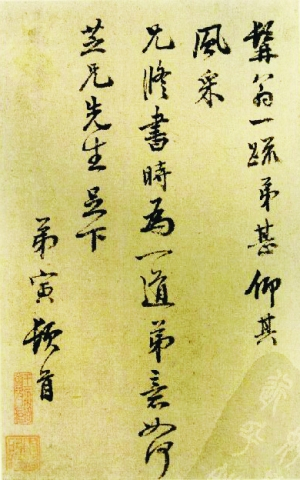 髯翁一疏弟甚仰其
風采
兄修書時為一道弟意如何
芝兄先生足下
弟寅頓首